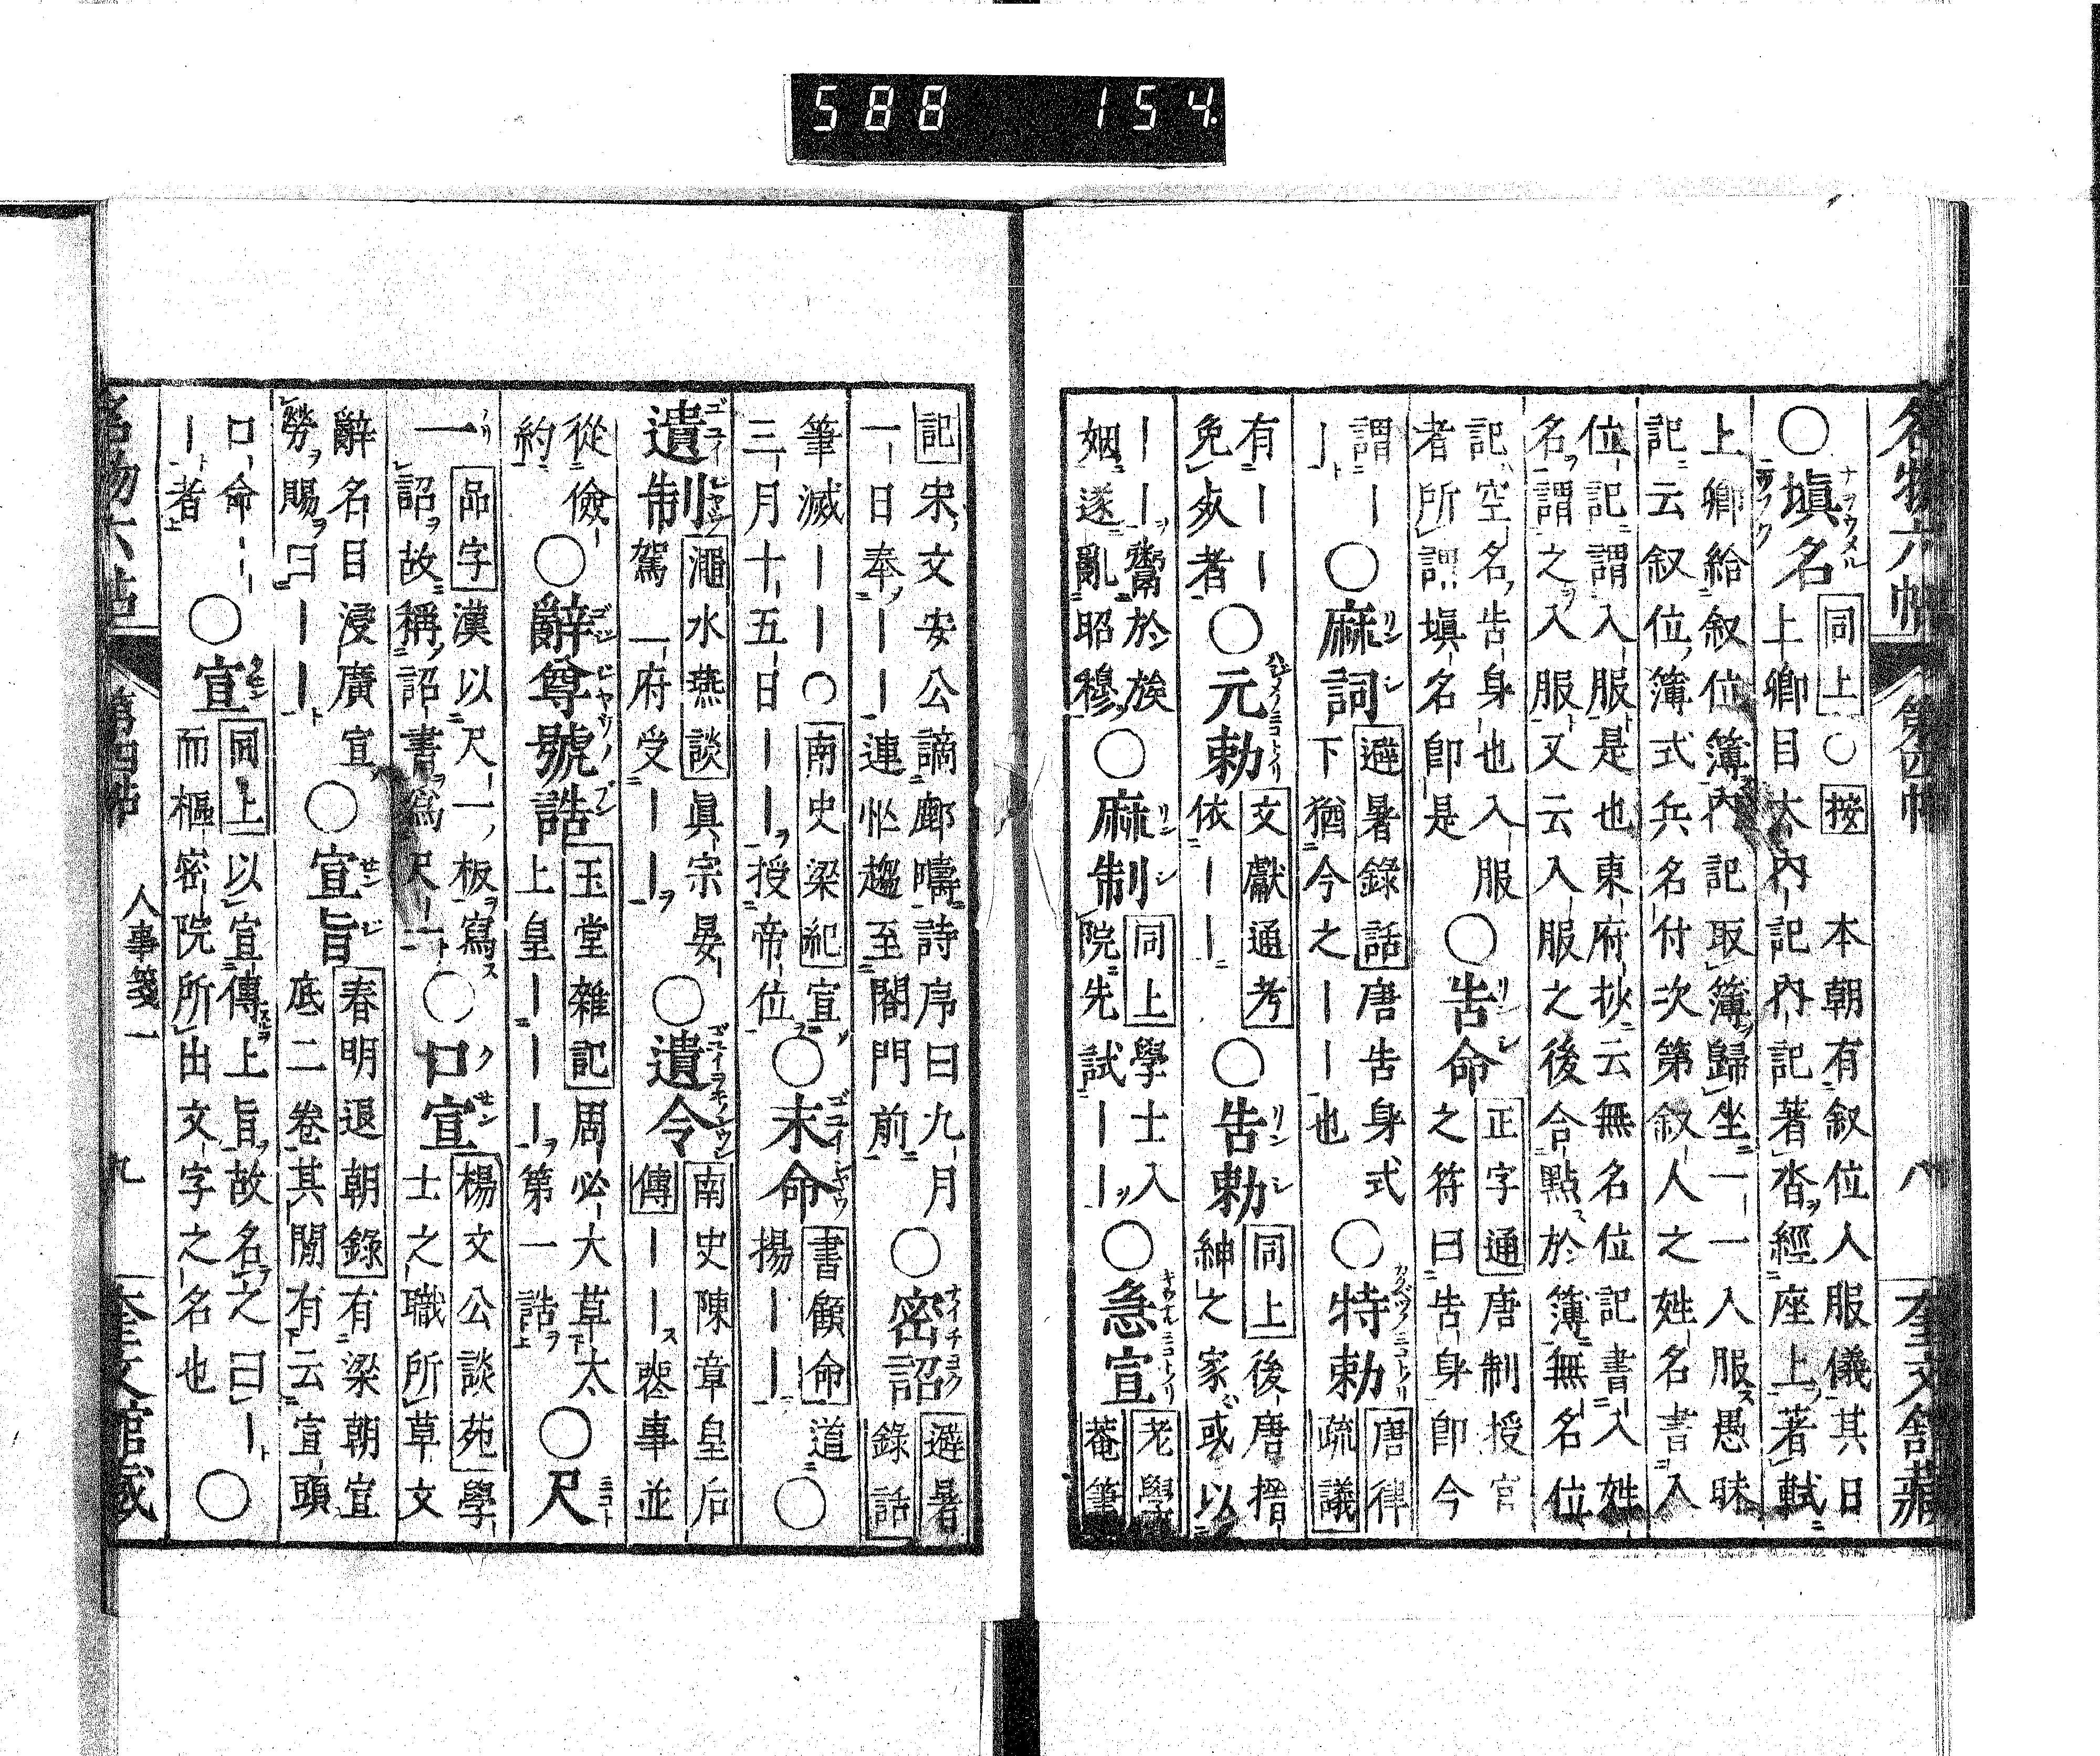 588 154.
名物六帖 第四帖 八 奎文館藏
○塡名 同上○按 本朝有叙位入服儀其日
上卿日大內記內記著沓經座上著軾
上卿給叙位簿內記取簿歸坐一一入服愚昧
記云叙位簿式兵名付次第叙人之姓名書入
位記謂入服是也東府抄云無名位記書入姓
名謂之入服又云入服之後合點於簿無名位
記空名告身也入服
者所謂塡名卽是
○告命 正字通唐制授官
之符曰告身卽今
謂一
一
○麻詞 避暑錄話唐告身式
下猶今之一一也
○特勅 唐律
疏議
有一一
免死者
○元勅 文獻通考
依一一
○告勅 同上後唐搢
紳之家或以
一一一鬻於族
姻遂亂昭穆
○麻制 同上學士入
院先試一一
○急宣 老學
菴筆
記宋文安公謫鄜疇詩序曰九月
一日奉一一一連忙趨至閤門前
○密詔 避暑
錄話
筆滅一一○南史梁紀宣
三月十五日一一授帝位
○末命 書顧命道
揚一一
○
遺制 澠水燕談眞宗晏
駕一府受一一
○遺令 南史陳章皇后
傳一一喪事並
從儉
約
○辭尊號誥 玉堂雜記周必大草太
上皇一一一第一誥
○尺
一 品字漢以尺一板寫
詔故稱詔書爲尺一
○口宣 楊文公談苑學
士之職所草文
辭名目浸廣宣
勞賜曰一一
○宣旨 春明退朝錄有梁朝宣
底二卷其閒有云宣頭
口命一一
一者
○宣 同上以宣傳上旨故名之曰一
而樞密院所出文字之名也
○
名物六帖 第四帖 人事箋一 九 奎文館藏